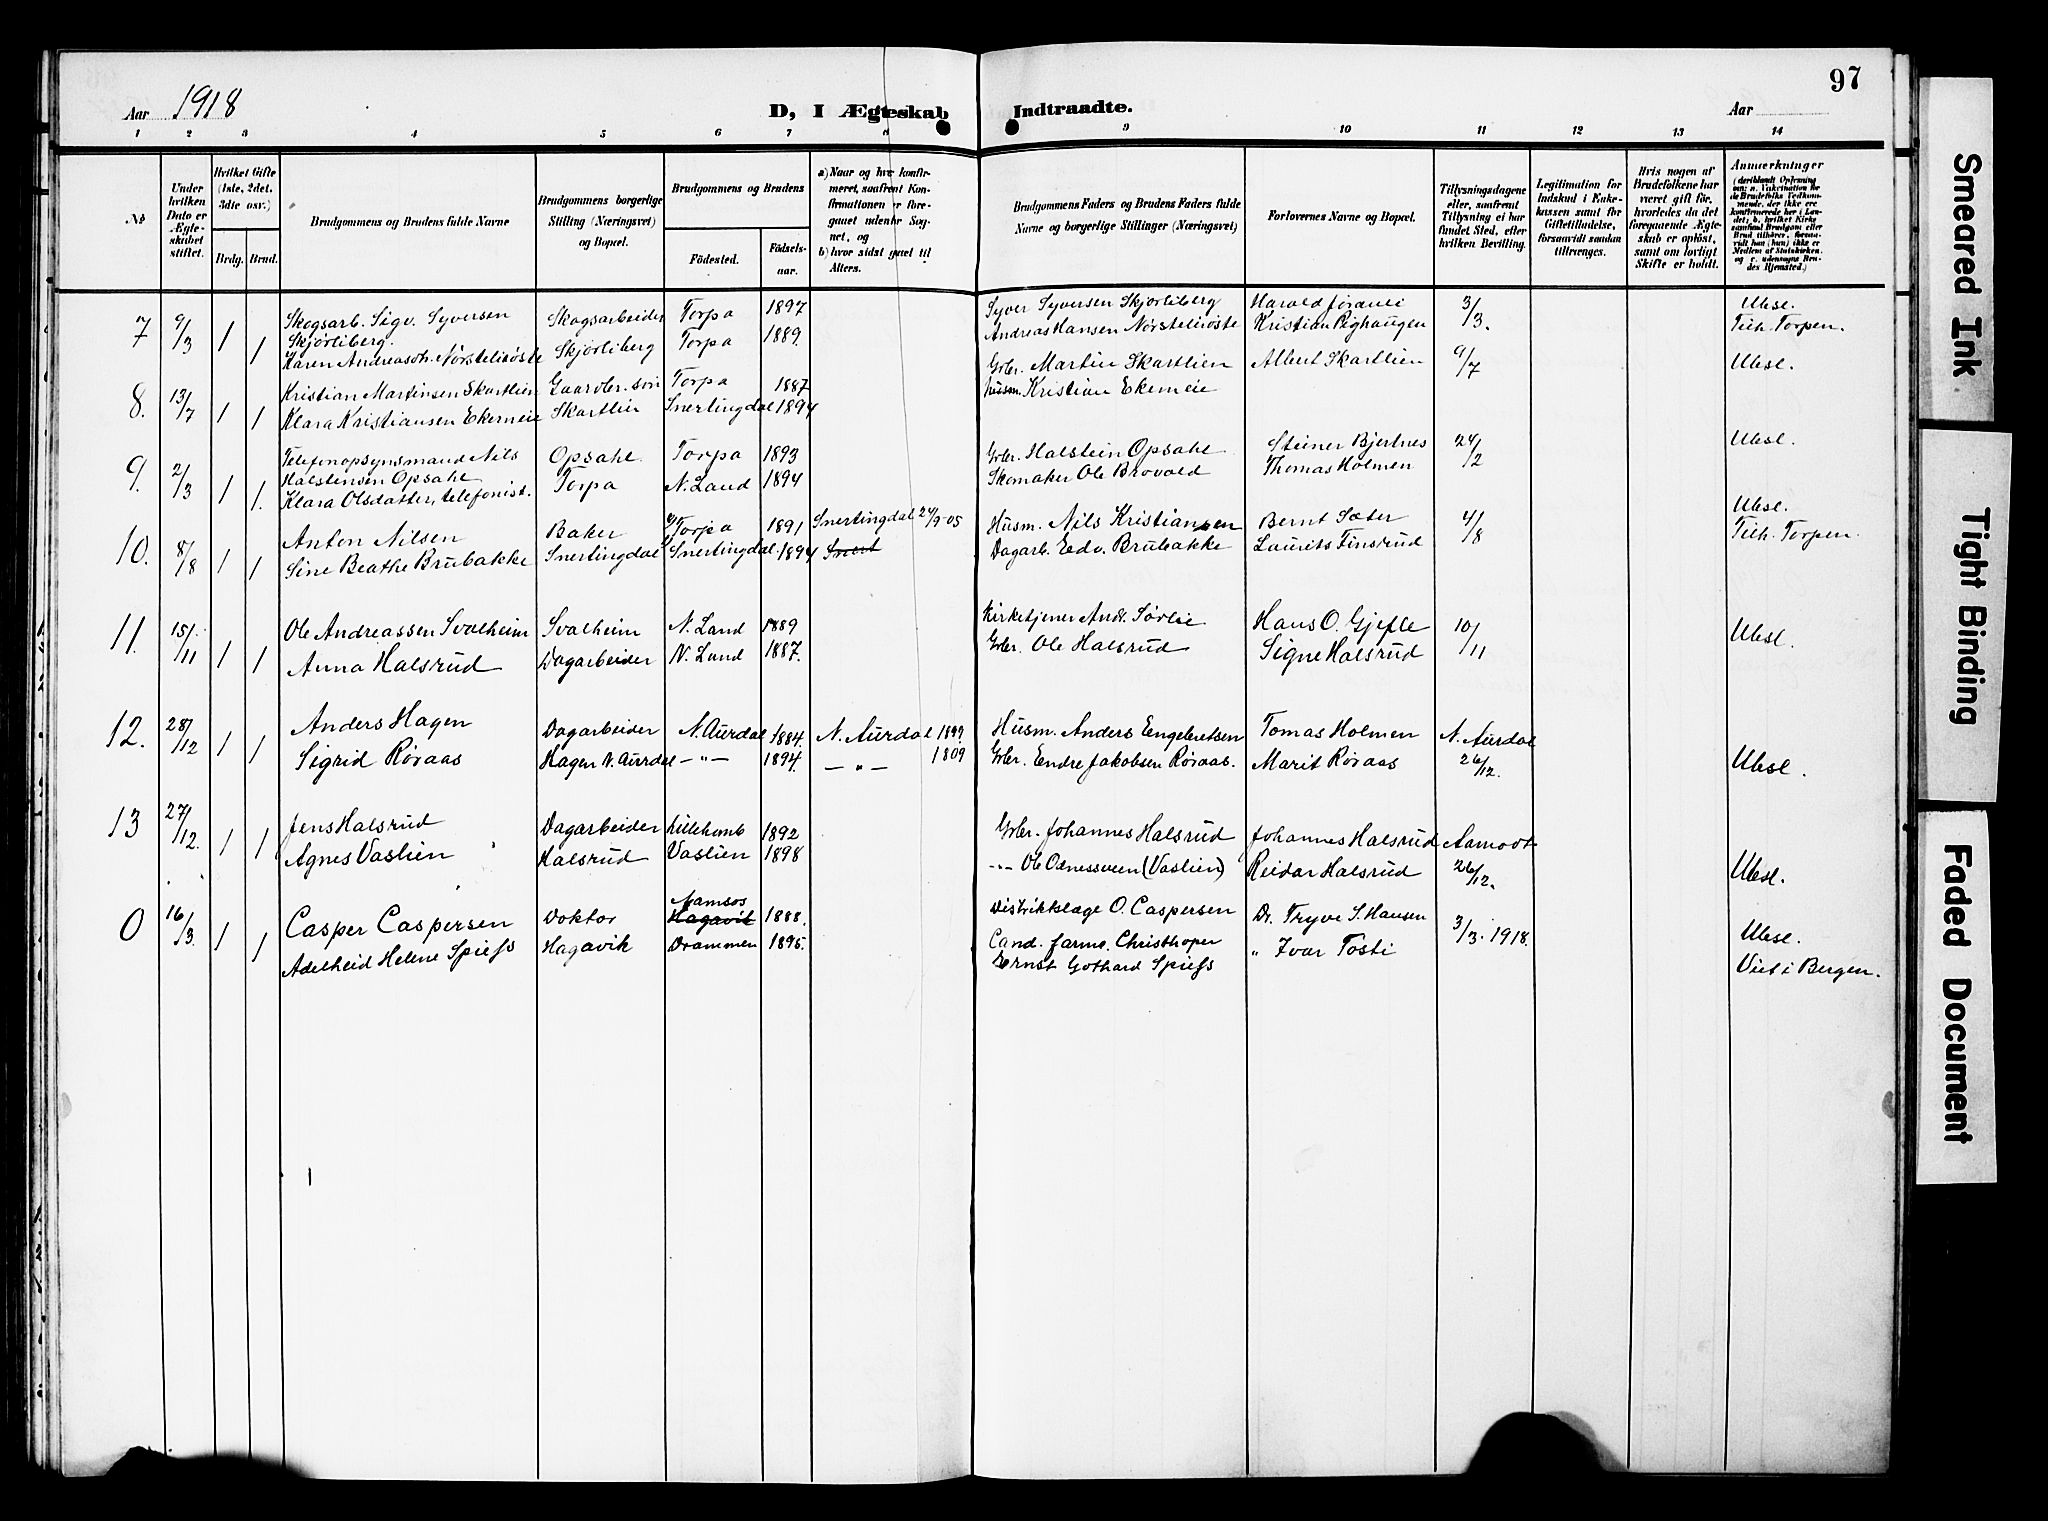 97
Aar 1918
D, I Ægteskab Indtraadte.
Aar
1 2 3 4 5 6 7 8 9 10 11 12 13 14
No
Under hvilken Dato er Ægteskabet stiftet.
Hvilket Gifte (1ste, 2det, 3die osv.)
Brdg. Brud.
Brudgommens og Brudens fulde Navne
Brudgommens borgerlige Stilling (Næringsvei) og Bopæl.
Brudgommens og Brudens
Födested. Födsels-aar.
a) Naar og hvor konfirmeret, saafremt Konfirmationen er foregaaet udenfor Sognet, og
b) hvor sidst gaaet til Alters.
Brudgommens Faders og Brudens Faders fulde Navne og borgerlige Stillinger (Næringsvei)
Forlovernes Navne og Bopæl.
Tillysningsdagene eller, saafremt Tillysning ei har fundet Sted, efter hvilken Bevilling.
Legitimation for Indskud i Enkekassen samt for Giftetilladelse, forsaavidt saadan tiltrænges.
Hvis nogen af Brudefolkene har været gift för, hvorledes da det foregaaende Ægteskab er oplöst, samt om lovligt Skifte er holdt.
Anmærkninger
7 9/3 1 1
Skogsarb. Sigv. Syversen Skjörliberg.
Karen Andreasdh. Nørstelisöste
Skogsarbeider Skjörliberg
Torpa 1897
Torpa 1889
Syver Syversen Skjørliberg
Andreas Hansen Nørstelisöste
3/3.
Ubsl.
Tilh. Torpen.
8. 13/7 1 1
Kristian Martinsen Skartlien
Klara Kristiansen Ekerneie
Gaardbr. søn Skartlien
Torpa 1887
Snertingdal 1894
Grbr. Martin Skartlien
Husm. Kristian Ekerneie
Albert Skartlien
9/7
Ubsl.
9. 2/3 1 1.
Telefonopsynsmand Nils Halstensen Opsahl
Klara Olsdatter, telefonist.
Opsahl Torpa
Torpa 1893
N. Land 1894
Grbr. Halstein Opsahl
Skomaker Ole Brovold
Steiner Bjertnes
Thomas Holmen
24/2
Ubsl.
10. 8/8 1 1
Anton Nilsen
Sine Beathe Brubakke
Baker Snertingdal
Torpa 1891
Snertingdal 1894
Snertingdal 24/9-05
Snert
Husm. Nils Kristiansen
Dagarb. Edv. Brubakke
Bernt Sæter
Laurits Finsrud
4/8
Ubsl.
Tilh. Torpen.
11. 15/11 1 1
Ole Andreassen Svalheim
Anna Halsrud
Svalheim Dagarbeider
N. Land 1889
N. Land 1887.
Kirketjener Andr. Sørlie
Grbr. Ole Halsrud
Hans O. Gjefle
Signe Halsrud
10/11
Ubsl.
12. 28/12 1 1
Anders Hagen
Sigrid Røraas
Dagarbeider Hagen N. Aurdal
N. Aurdal 1884.
— " — 1894.
N. Aurdal 1899
— " — 1809
Husm. Anders Engebretsen
Grbr. Endre Jakobsen Røraas.
Tomas Holmen
Marit Røraas
N. Aurdal 26/12.
Ubsl.
13 27/12. 1 1
Jens Halsrud
Agnes Vaslien
Dagarbeider Halsrud
Lillehamb 1892
Vaslien 1898
Grbr. Johannes Halsrud
-"- Ole Odnessveen (Vaslien)
Johannes Halsrud
Reidar Halsrud
Aamodt 26/12.
Ubsl.
0 16/3. 1 1
Casper Caspersen
Adelheid Helene Spiess
Doktor Hagavik
Namsos
Hagavik 1888.
Drammen 1895.
Distriktslæge O. Caspersen
Cand. farm. Christhoper Ernst Gothard Spiess
Dr. Tryve S. Hansen
" Ivar Tosti
3/3. 1918.
Ubsl.
Viet i Bergen.
Smeared Ink
Tight Binding
Faded Document